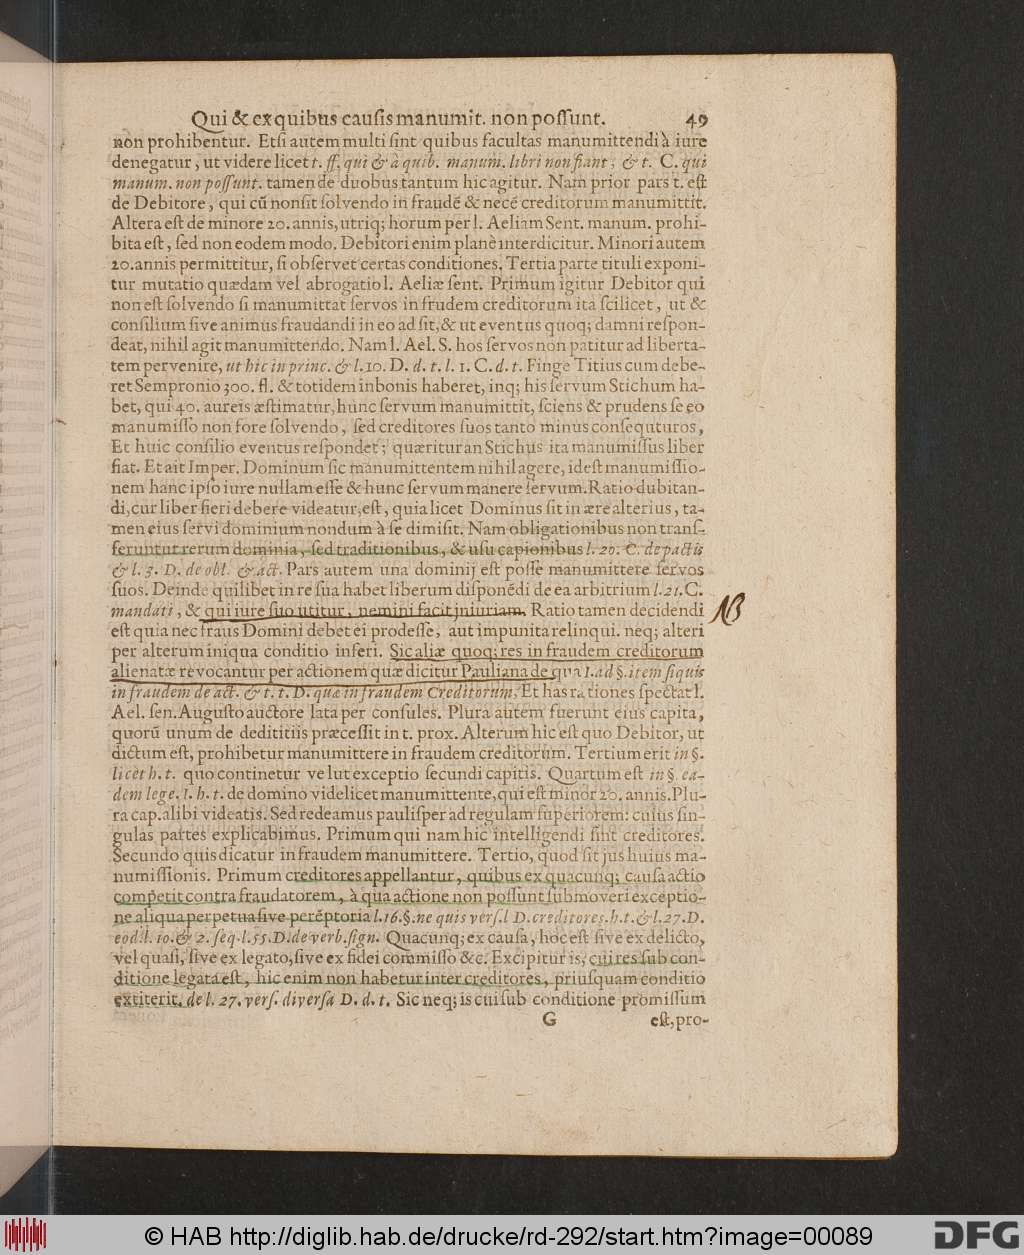 Qui & ex quibus causis manumit. non possunt. 49
non prohibentur. Etsi autem multi sint quibus facultas manumittendi à iure
denegatur, ut videre licet t. ff. qui & à quib. manum. libri non fiant; & t. C. qui
manum. non possunt. tamen de duobus tantum hic agitur. Nam prior pars t. est
de Debitore, qui cū non sit solvendo in fraudē & necē creditorum manumittit.
Altera est de minore 20. annis, utriq; horum per l. Aeliam Sent. manum. prohi-
bita est, sed non eodem modo. Debitori enim planè interdicitur. Minori autem
20. annis permittitur, si observet certas conditiones. Tertia parte tituli exponi-
tur mutatio quædam vel abrogatio l. Aeliæ sent. Primum igitur Debitor qui
non est solvendo si manumittat servos in frudem creditorum ita scilicet, ut &
consilium sive animus fraudandi in eo ad sit, & ut eventus quoq; damni respon-
deat, nihil agit manumittendo. Nam l. Ael. S. hos servos non patitur ad liberta-
tem pervenire, ut hic in princ. & l. 10. D. d. t. l. 1. C. d. t. Finge Titius cum debe-
ret Sempronio 300. fl. & totidem in bonis haberet, inq; his servum Stichum ha-
bet, qui 40. aureis æstimatur, hunc servum manumittit, sciens & prudens se eo
manumisso non fore solvendo, sed creditores suos tanto minus consequturos,
Et huic consilio eventus respondet; quæritur an Stichus ita manumissus liber
fiat. Et ait Imper. Dominum sic manumittentem nihil agere, id est manumissio-
nem hanc ipso iure nullam esse & hunc servum manere servum. Ratio dubitan-
di, cur liber fieri debere videatur, est, quia licet Dominus sit in ære alterius, ta-
men eius servi dominium nondum à se dimisit. Nam obligationibus non trans-
feruntut rerum dominia, sed traditionibus, & usu capionibus l. 20. C. de pactis
& l. 3. D. de obl. & act. Pars autem una dominij est posse manumittere servos
suos. Deinde quilibet in re sua habet liberum dispōnēdi de ea arbitrium l. 21. C.
mandati, & qui iure suo utitur, nemini facit jniuriam. Ratio tamen decidendi NB
est quia nec fraus Domini debet ei prodesse, aut impunita relinqui. neq; alteri
per alterum iniqua conditio inferi. Sic aliæ quoq; res in fraudem creditorum
alienatæ revocantur per actionem quæ dicitur Pauliana de qua l. ad §. item si quis
in fraudem de act. & t. t. D. quæ in fraudem Creditorum, Et has rationes spectat l.
Ael. sen. Augusto auctore lata per consules. Plura autem fuerunt eius capita,
quorū unum de dedititiis præcessit in t. prox. Alterum hic est quo Debitor, ut
dictum est, prohibetur manumittere in fraudem creditorum. Tertium erit in §.
licet h. t. quo continetur ve lut exceptio secundi capitis. Quartum est in §. ea-
dem lege. 1. h. t. de domino videlicet manumittente, qui est minor 20. annis. Plu-
ra cap. alibi videatis. Sed redeamus paulisper ad regulam superiorem: cuius sin-
gulas partes explicabimus. Primum qui nam hic intelligendi sint creditores.
Secundo quis dicatur in fraudem manumittere. Tertio, quod sit jus huius ma-
numissionis. Primum creditores appellantur, quibus ex quacunq; causa actio
competit contra fraudatorem, à qua actione non possunt submoveri exceptio-
ne aliqua perpetua sive perēptoria l. 16. §. ne quis vers. l D. creditores. h. t. & l. 27. D.
eod. l. 10. & 2. seq. l. 55. D. de verb. sign. Quacunq; ex causa, hoc est sive ex delicto,
vel quasi, sive ex legato, sive ex fidei commisso &c. Excipitur is, cui res sub con-
ditione legata est, hic enim non habetur inter creditores, priusquam conditio
extiterit. de l. 27. vers. diversa D. d. t. Sic neq; is cui sub conditione promissum
G est, pro-
© HAB http://diglib.hab.de/drucke/rd-292/start.htm?image=00089 DFG